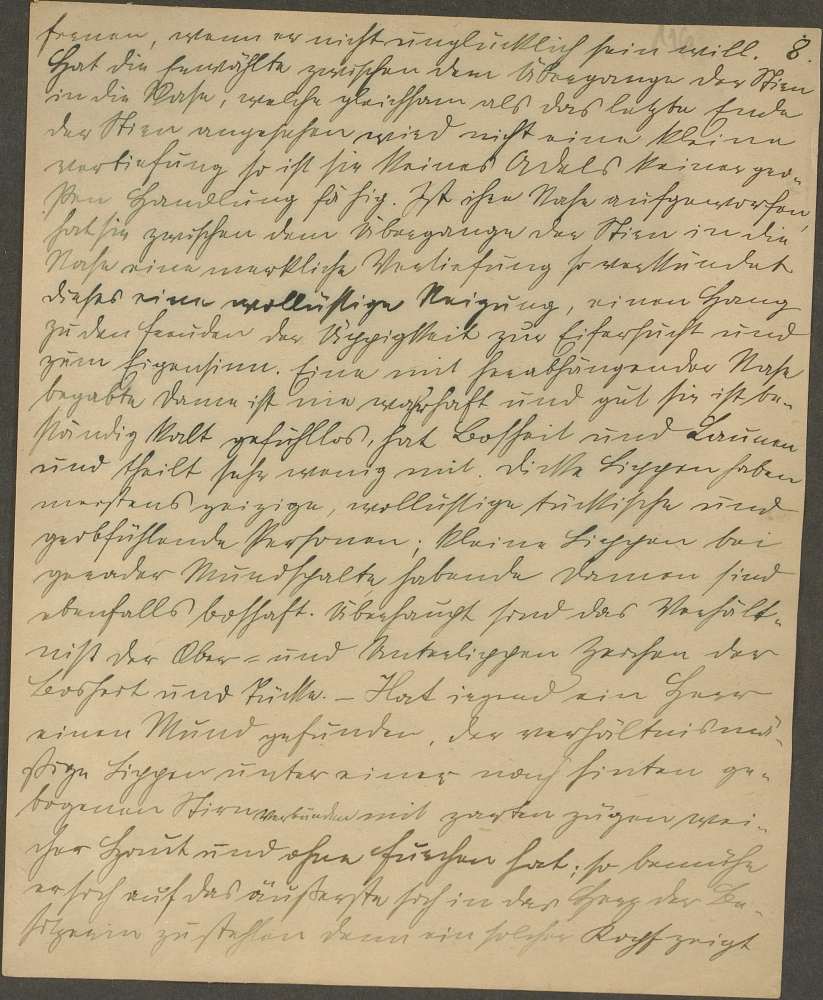 trennen, wenn er nicht unglücklich sein will. 8.
Hat die Erwählte zwischen dem Übergange der Stirn
in die Nase, welche gleichsam als das letzte Ende
der Stirn angesehen wird nicht eine kleine
Vertiefung so ist sie keines Adels keiner gro-
ßen Handlung fähig. Ist ihre Nase aufgeworfen,
hat sie zwischen dem Übergange der Stirn in die
Nase eine merkliche Vertiefung so verkündet
dieses eine wollüstige Neigung, einen Hang
zu den Freuden der Üppigkeit zur Eifersucht und
zum Eigensinn. Eine mit herabhängender Nase
begabte Dame ist nie wahrhaft und gut sie ist be-
ständig kalt gefühllos, hat Bosheit und Launen
und theilt sehr wenig mit. Dicke Lippen haben
meistens geizige, wollüstige tückische und
grobfühlende Personen; kleine Lippen bei
gerader Mundspalte habende Damen sind
ebenfalls boshaft. Überhaupt sind das Verhält-
niß der Ober- und Unterlippen Zeichen der
Bosheit und Tücke. – Hat irgend ein Herr
einen Mund gefunden, der verhältnismä-
ßige Lippen unter einer nach hinten ge-
bogenen Stirn verbunden mit zarten Zügen wei-
cher Haut und ohne Furchen hat; so bemühe
er sich auf das äußerste sich in das Herz der Be-
sitzerin zu stehlen denn ein solcher Kopf zeigt